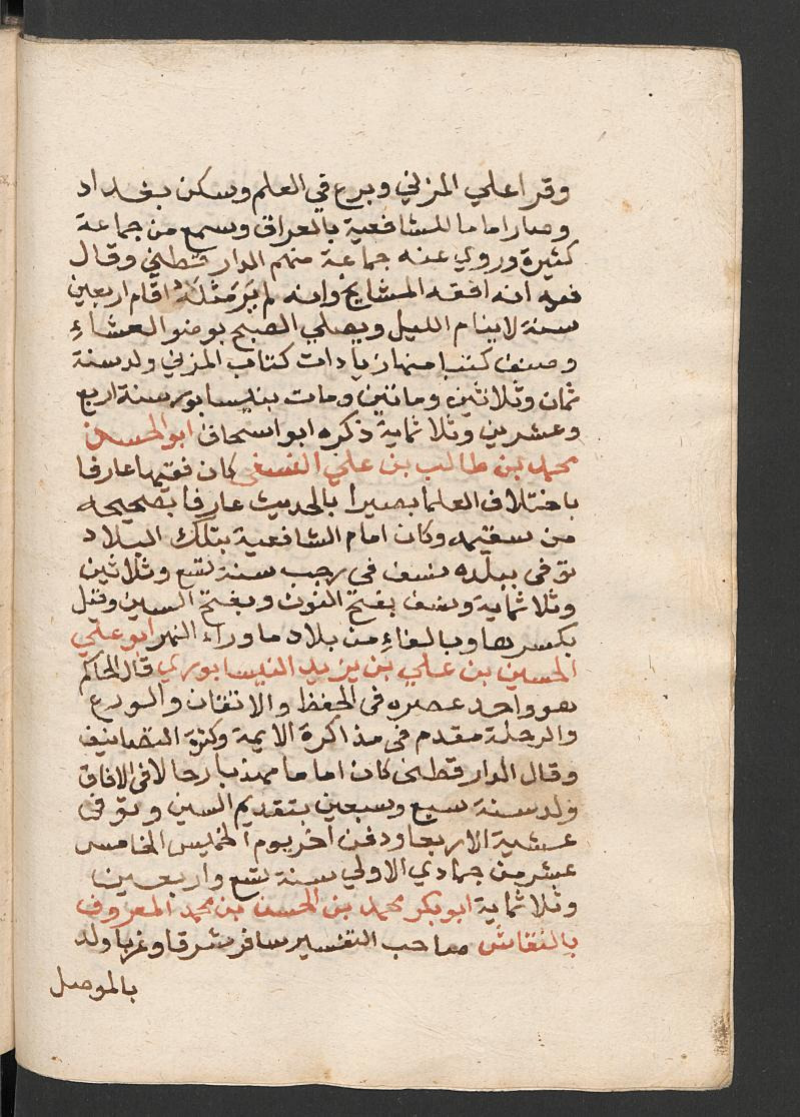 وقرا علي المزني وبرع في العلم وسكن بغداد
وصار اماما للشافعية بالعراق وسمع من جماعة
كثيرة وروي عنه جماعة منهم الدارقطني وقال
فيه انه افقه المشايخ وانه لم ير مثله اقام اربعين
سنة لاينام الليل ويصلي الصبح بوضو العشاءِ
وصنف كتبا منها زيادات كتاب المزني ولد سنة
ثمان وثلاثين وماتين ومات بنيسابور سنة اربع
وعشرين وثلاثماية ذكره ابو اسحاق ابو الحسين
محمد بن طالب بن علي النسفي كان فقيها عارفا
باختلاف العلما بصيرا بالحديث عارفا بصحيحه
من سقيمه وكان امام الشافعية بتلك البلاد
توفي ببلده نسف في رجب سنة تسع وثلاثين
وثلاثماية ونسف بفتح النون وبفتح السين وقيل
بكسرها وبالفاءِ من بلاد ما وراء النهر ابو علي
الحسين بن علي بن يزيد النيسابوري قال الحاكم
هو واحد عصره في الحفظ والاتقان والورع
والرحلة مقدم في مذاكرة الايمة وكثرة التصانيف
وقال الدارقطني كان اماما مهذبا رحالا في الافاق
ولد سنة سبع وسبعين بتقديم السين وتوفي
عشية الاربعا ودفن اخر يوم الخميس الخامس
عشر من جمادي الاولي سنة تسع واربعين
وثلاثماية ابو بكر محمد بن الحسن بن محمد المعروف
بالنقاش صاحب التفسير سافر شرقا وغربا ولد
بالموصل